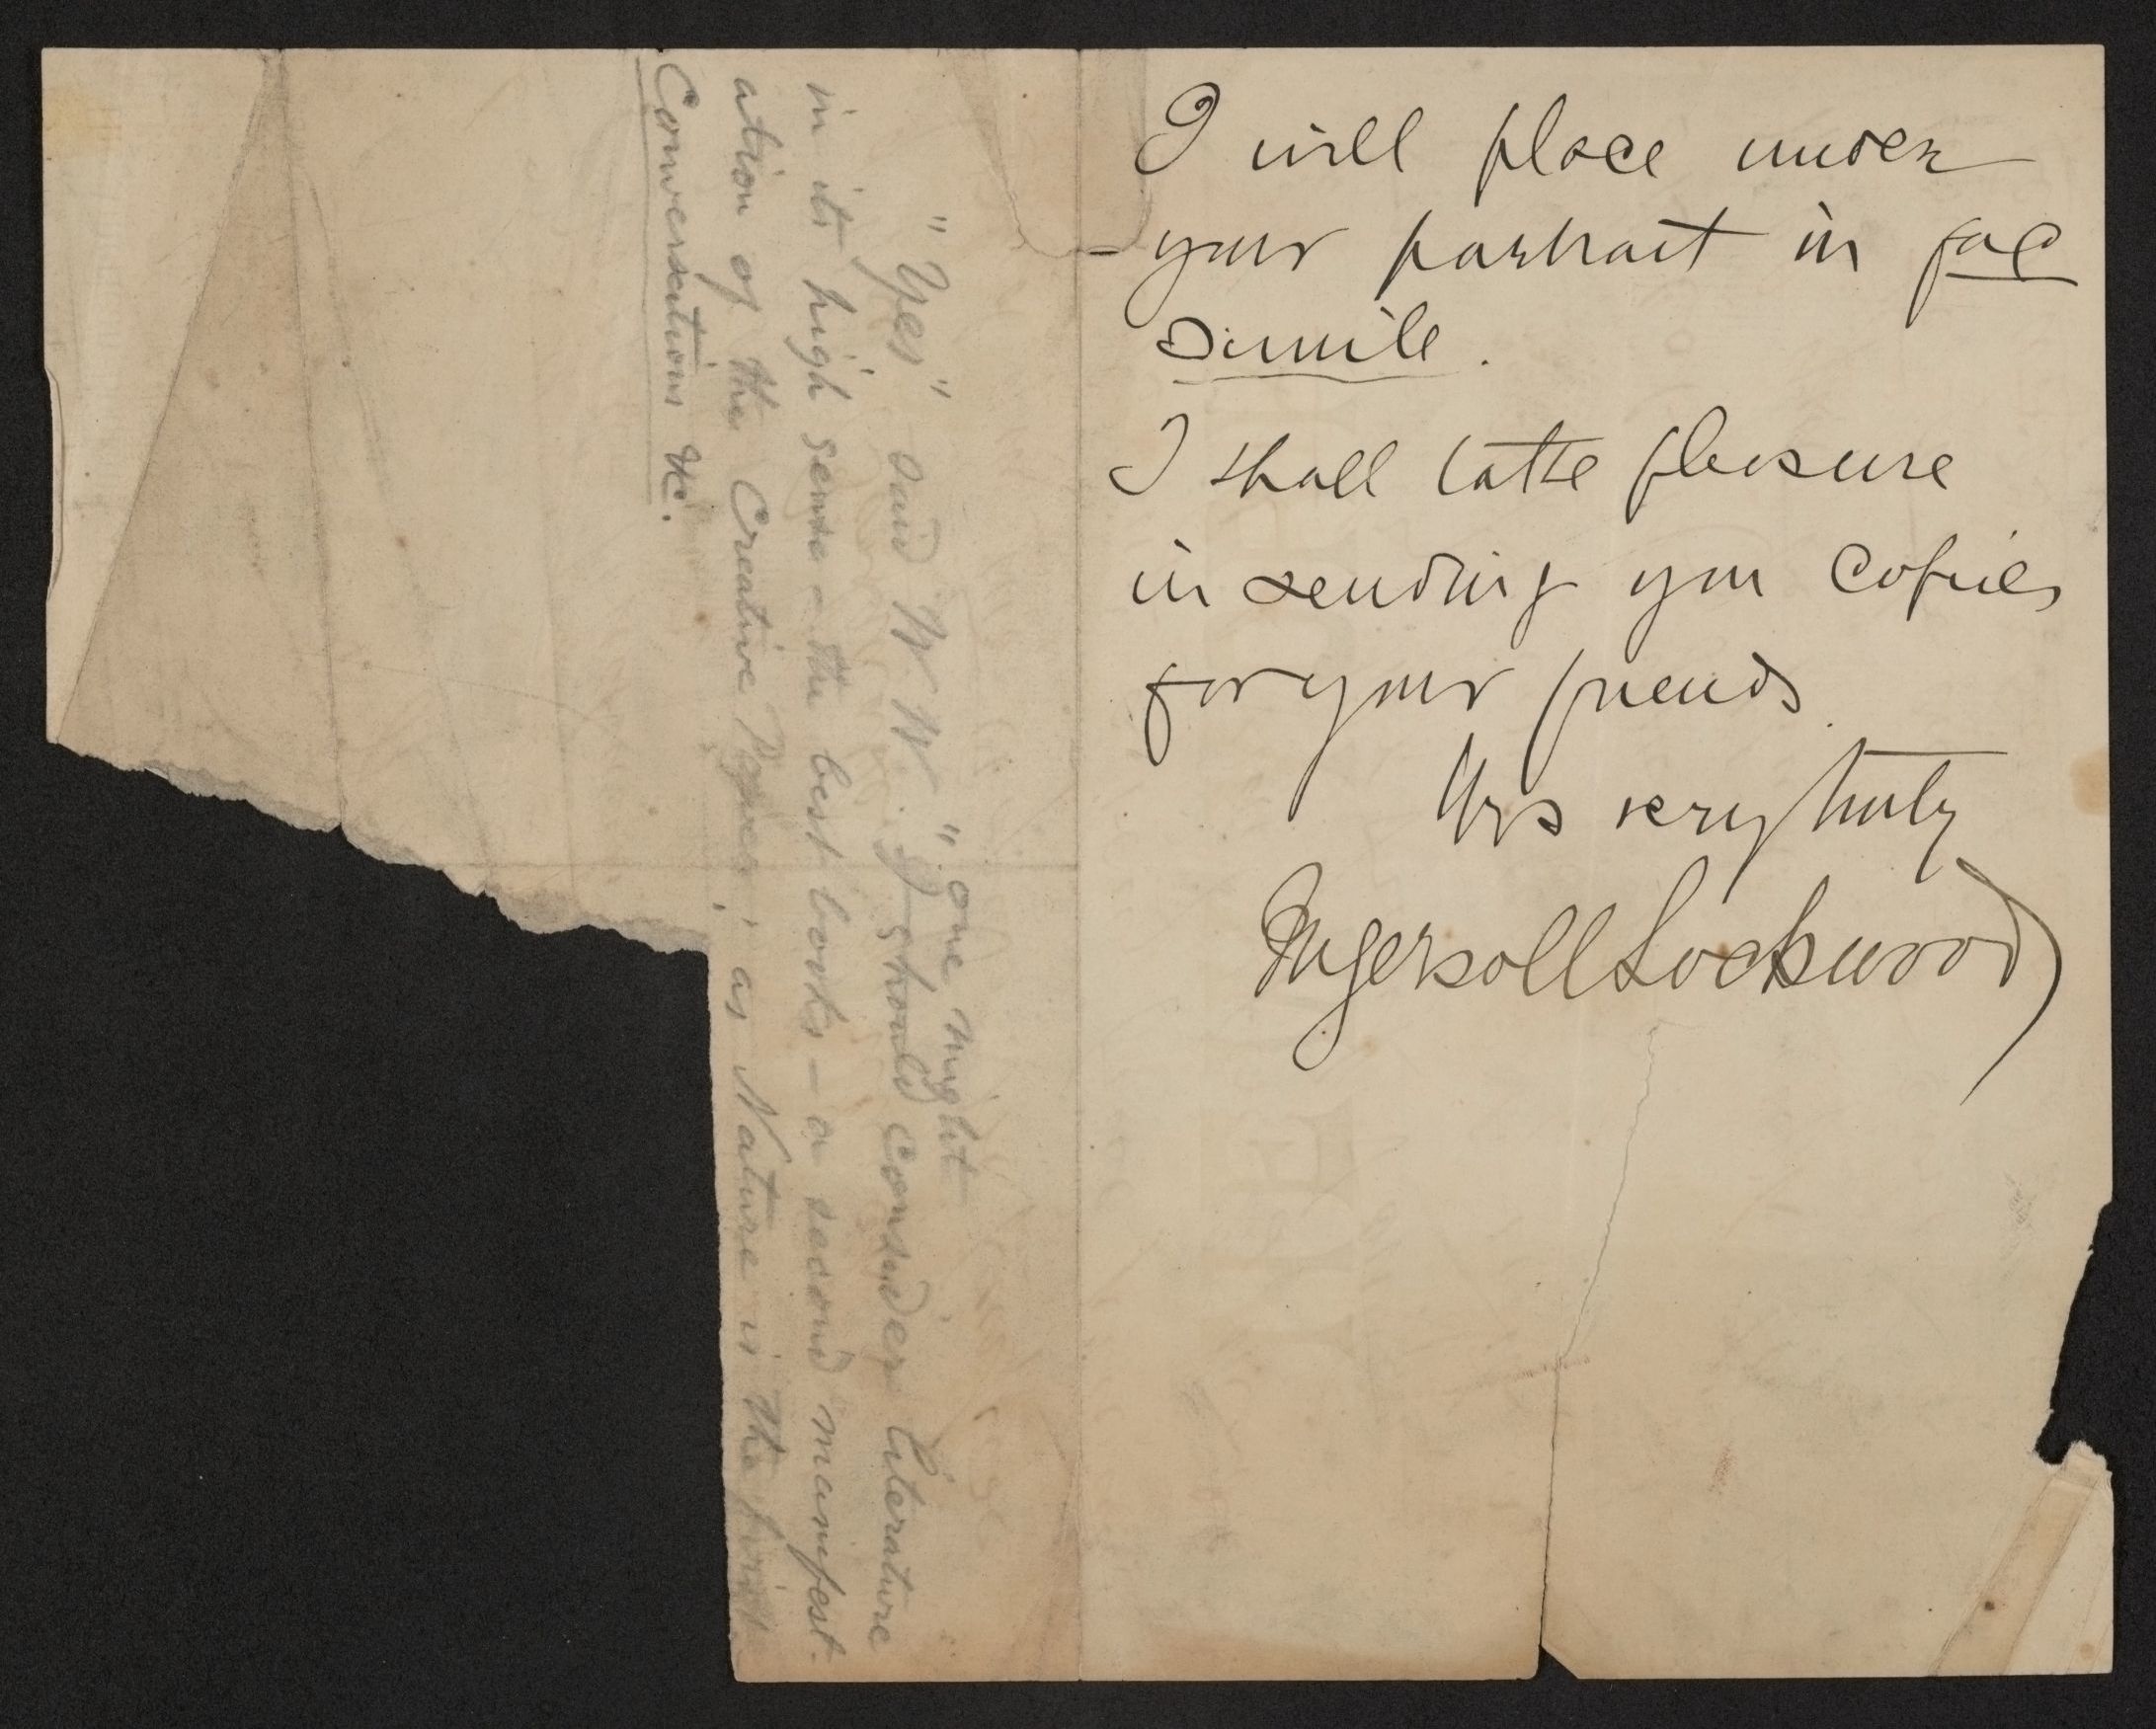 I will place under
your portrait in fac
simile.
I shall take pleasure
in sending you copies
for your friends.
Yrs very truly
Ingersoll Lockwood
"one might
"Yes" said W W. I should consider literature
in its high sense – the best books – a second manifest-
ation of the Creative Power, as Nature is the first.
Conversations &c.